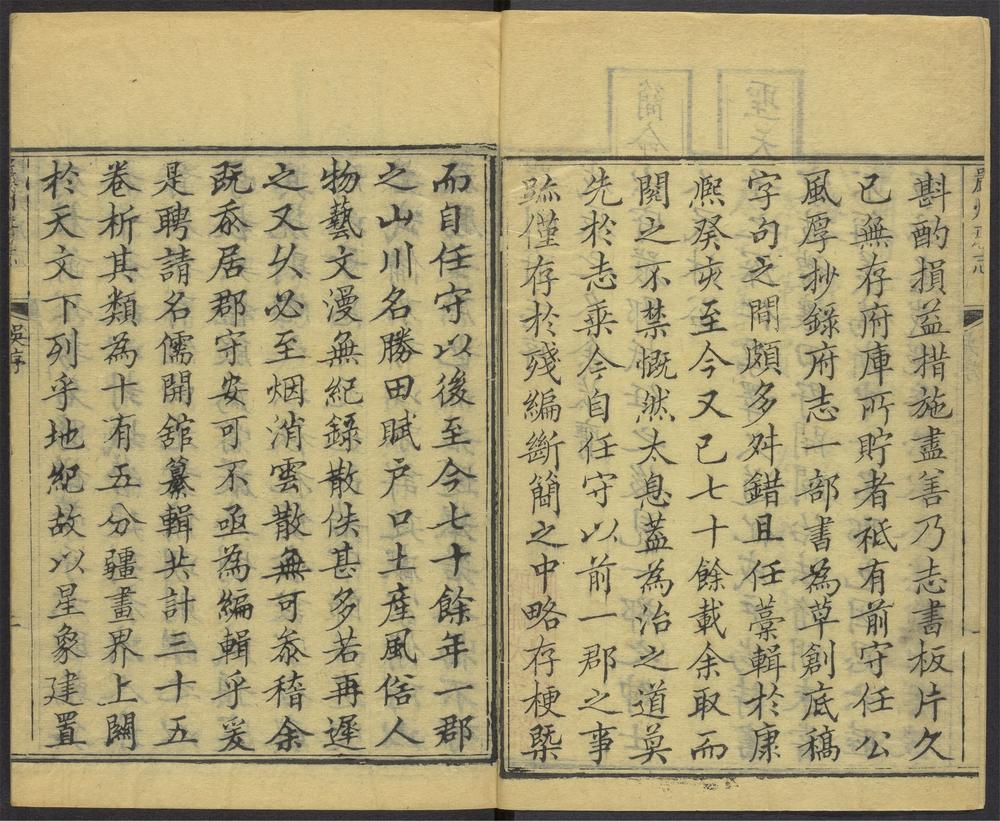 斟酌損益措施盡善乃志書板片久
已無存府庫所貯者祗有前守任公
風厚抄錄府志一部書為草創底稿
字句之間頗多舛錯且任藁輯於康
熈癸亥至今又已七十餘載余取而
閱之不禁慨然太息葢為治之道莫
先於志乘今自任守以前一郡之事
跡僅存於殘編斷簡之中略存梗槩
而自任守以後至今七十餘年一郡
之山川名勝田賦户口土産風俗人
物藝文漫無紀錄散佚甚多若再遲
之又久必至烟消雲散無可叅稽余
既忝居郡守安可不亟為編輯乎爰
是聘請名儒開舘纂輯共計三十五
卷析其類為十有五分疆畫界上關
於天文下列乎地紀故以星象建置
吳序